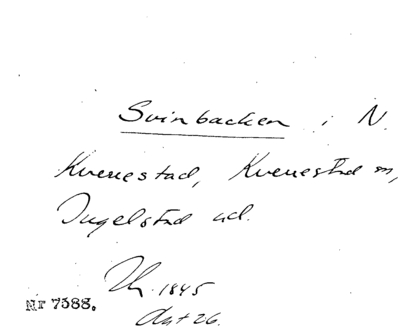 Svinbacken i N.
Kverrestad, Kverrestad sn,
Ingelstad hd.
Th. 1845
Ant 26.
Nr 7588.